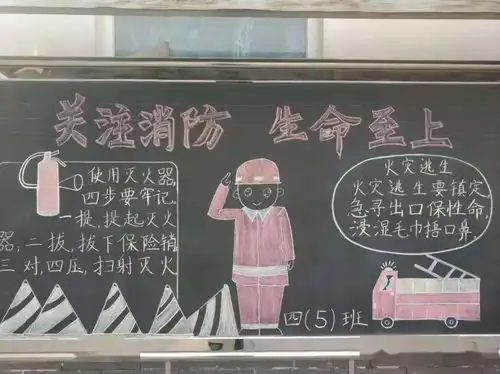 关注消防 生命至上
使用灭火器,
四步要牢记,
一提,提起灭火
器,二拔,拔下保险销
三对,四压,扫射灭火
火灾逃生
火灾逃生要镇定
急寻出口保性命,
浸湿毛巾捂口鼻,
四(5)班